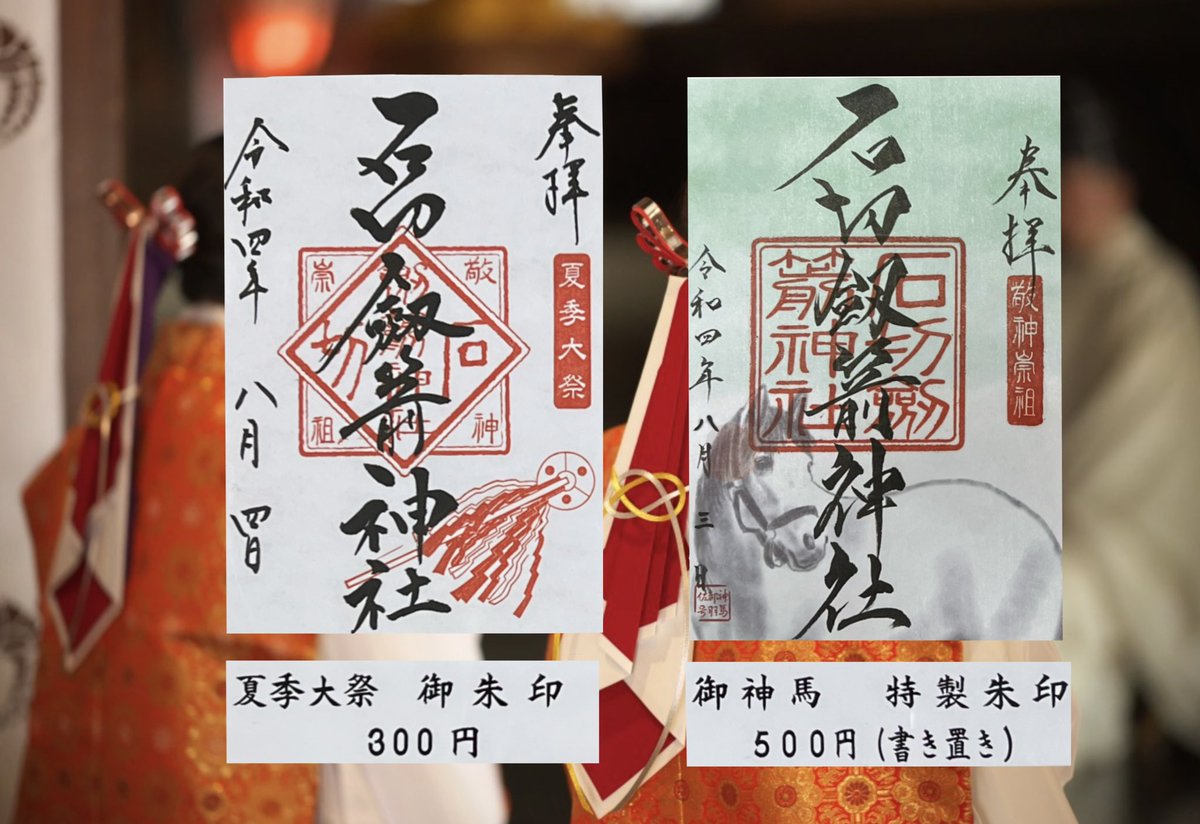 奉拝
夏季大祭
石切劔箭神社
敬神
崇祖
石切
令和四年 八月 四日
夏季大祭 御朱印
300円
奉拝
敬神崇祖
石切劔箭神社
石切劔
箭神社
令和四年八月三日
御神馬 特製朱印
500円(書き置き)